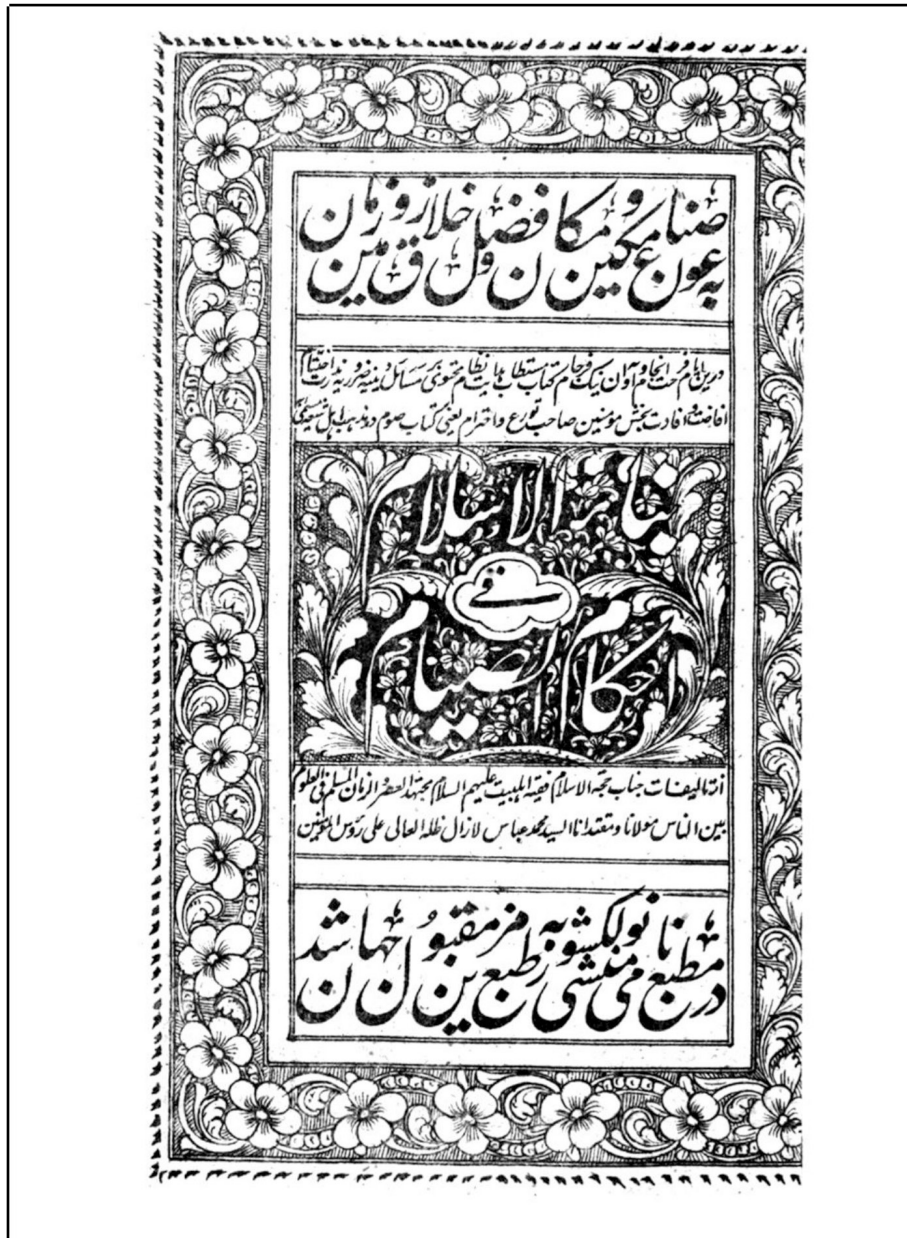 به عون صناع مکین و مکان و فضل خلاق زمین و زمان
درین ایام فرحت انجام و آوان نیک فرجام کتاب مستطاب هدایت نظام محتوی بر مسائل دینیه
افادت بخش مومنین صاحب تورع و احترام یعنی کتاب صوم در مذهب اہل تشیع
بناء الاسلام
فی
احکام الصیام
از تالیفات جناب حجة الاسلام فقیه اہلبیت علیہم السلام مجتہد العصر و الزمان المسلم فی العلوم
بین الناس مولانا و مقتدانا السید محمد عباس لازال ظله العالی علی رؤس المومنین
در مطبع نامی منشی نولکشور به طبع مزین مقبول جهان شد